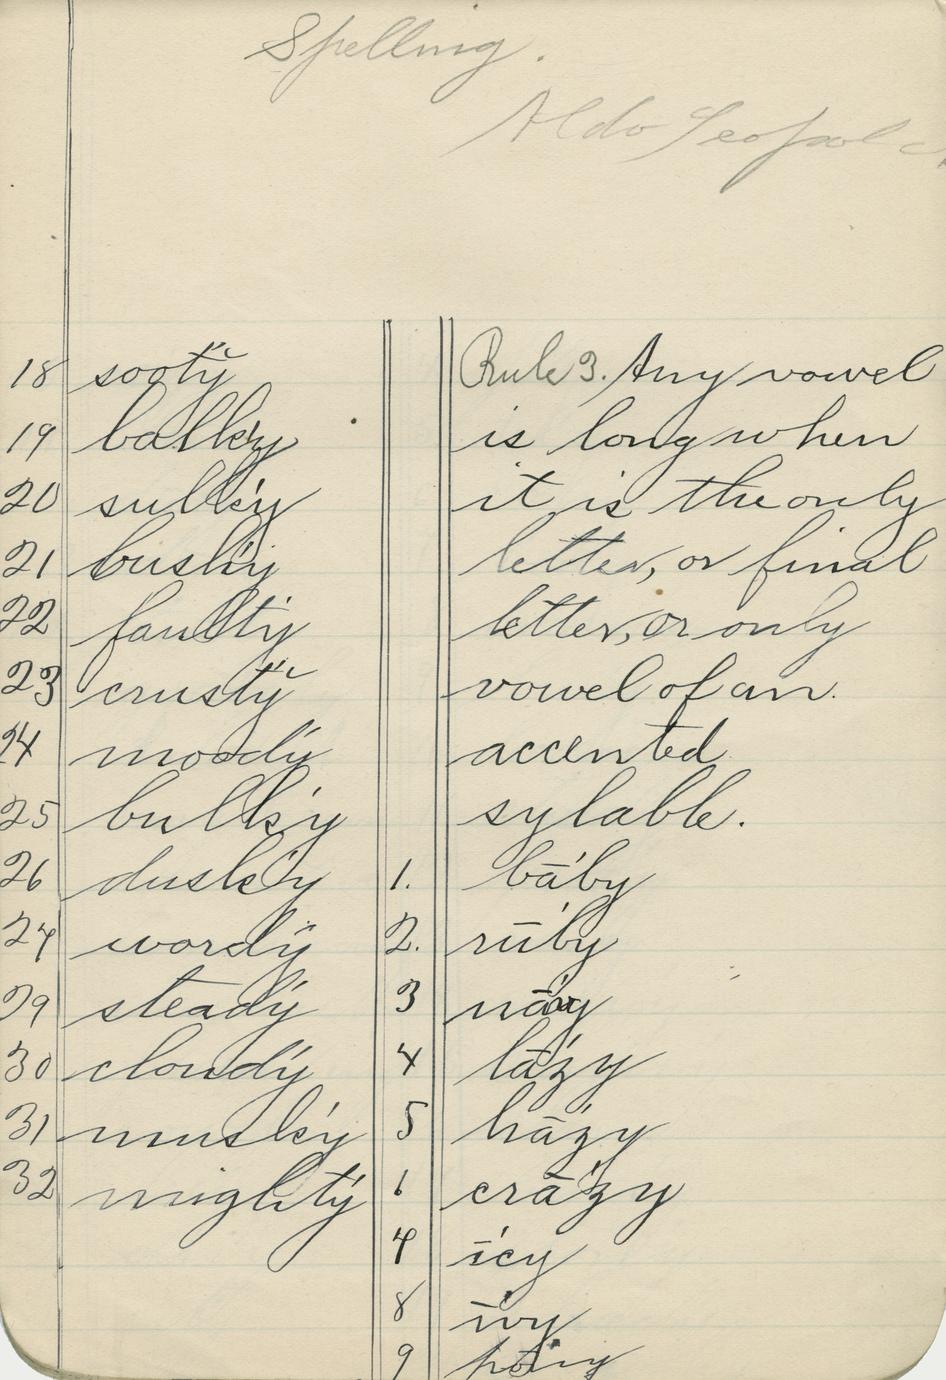 Spelling.
Aldo Leopold
18 sooty̆
19 balky
20 sulky
21 bushy
22 faulty
23 crusty̆
24 moody
25 bulky
26 dusky
27 wordy̆
29 steady
30 cloudy
31 musky
32 mighty
Rule 3. Any vowel
is long when
it is the only
letter, or final
letter, or only
vowel of an
accented
sylable.
1. bā́by
2. rū́by
3 nā́vy
4 lā́zy
5 hā́zy
6 crā́zy
7 ī́cy
8 īvy
9 pony